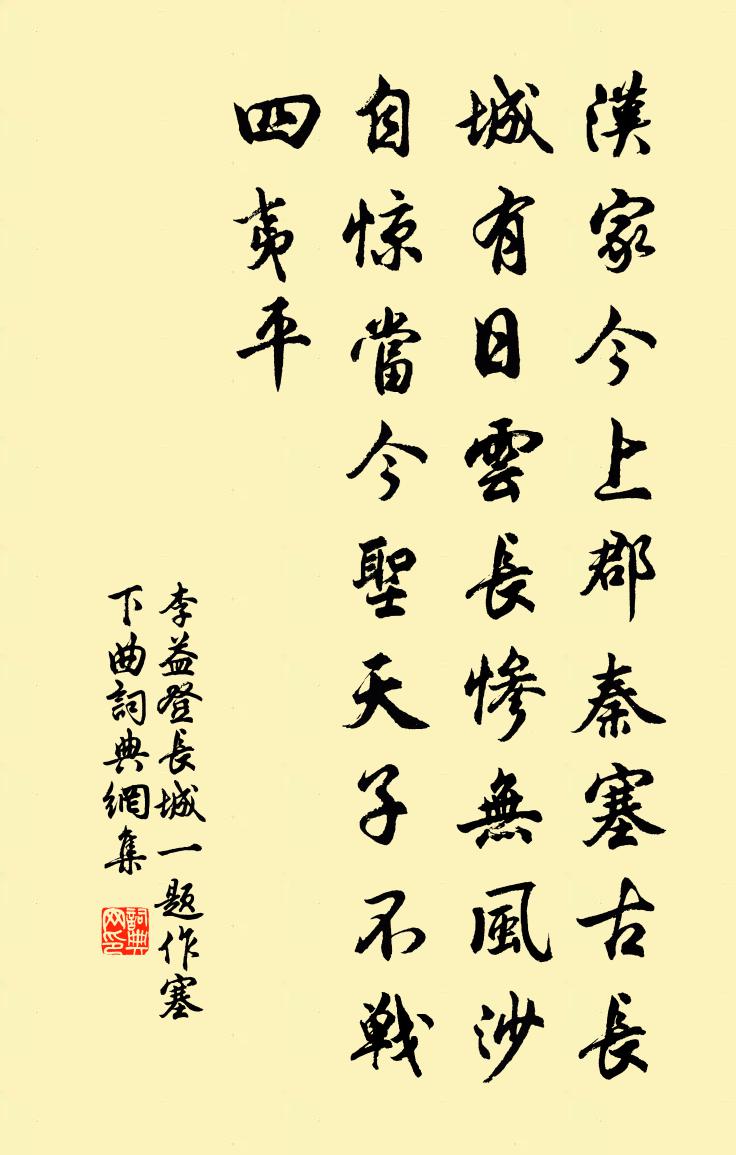 漢家今上郡秦塞古長
城有日雲長惨無風沙
自惊當今聖天子不戦
四夷平
李益登長城一题作塞
下曲詞典網集
詞典
网印